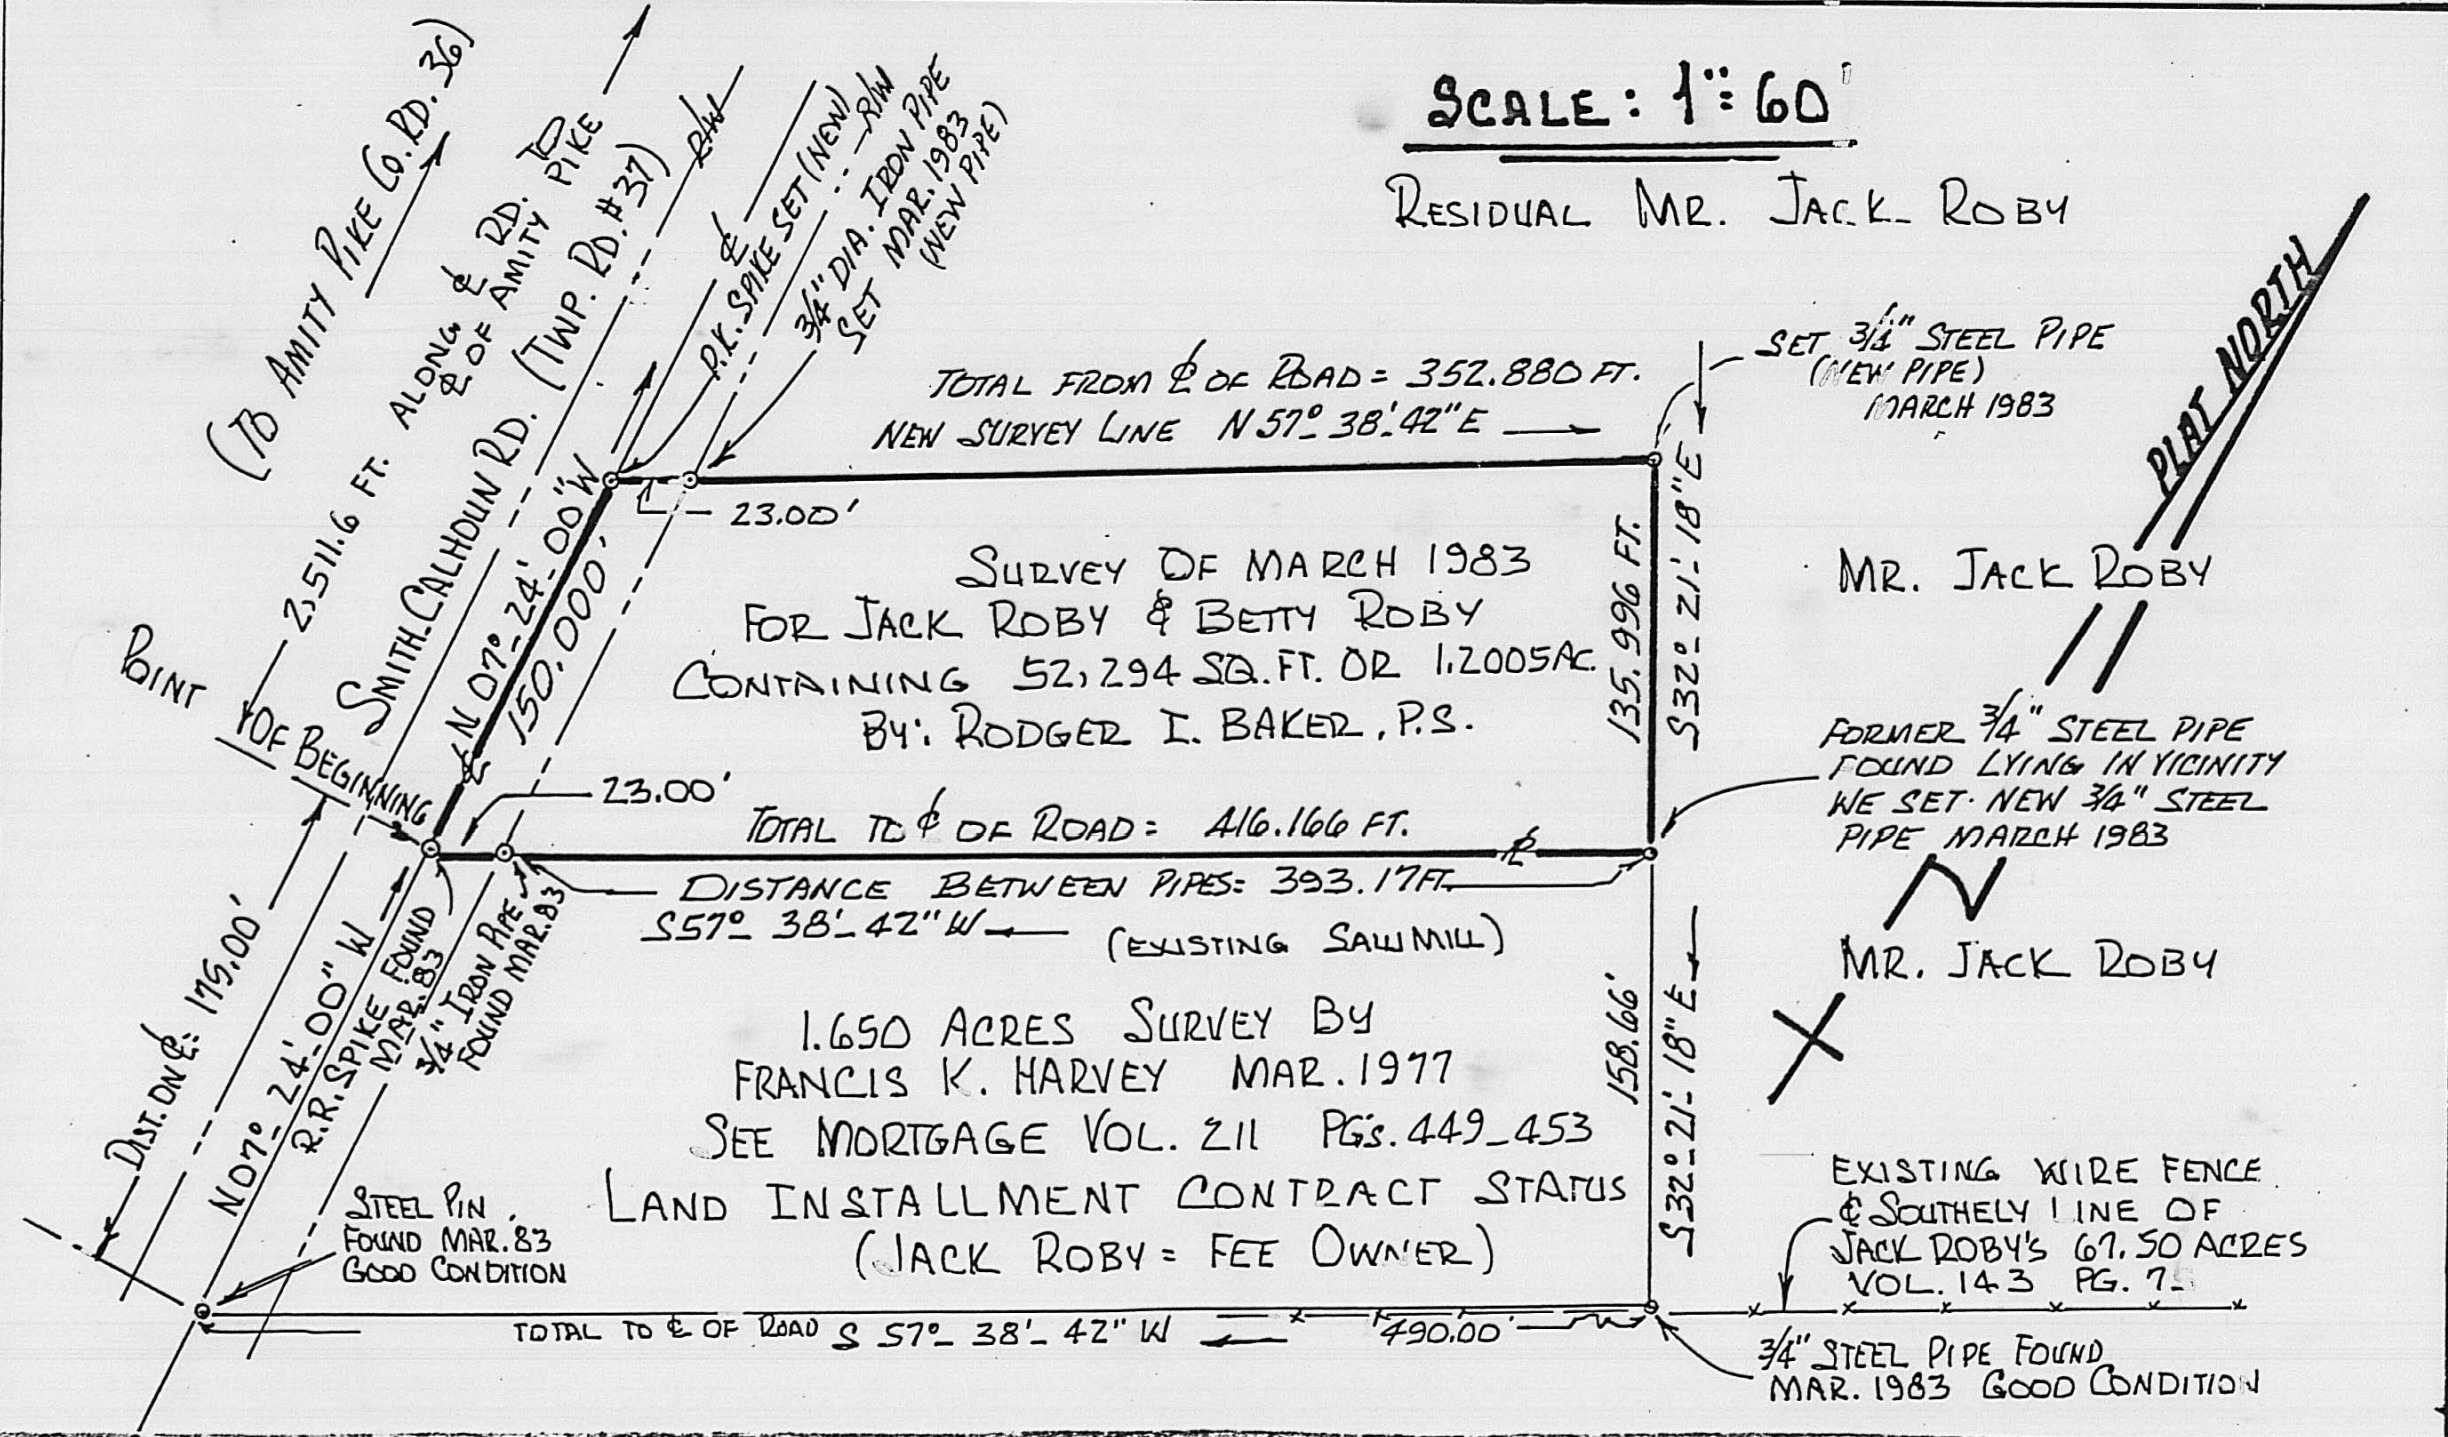 SCALE: 1"= 60'
RESIDUAL MR. JACK ROBY
(TO AMITY PIKE CO. RD. 36)
2,511.6 FT. ALONG ℄ RD. TO
℄ OF AMITY PIKE
SMITH-CALHOUN RD. (TWP. RD. #37)
R/W
℄
P.K. SPIKE SET (NEW)
R/W
3/4" DIA. IRON PIPE
SET MAR. 1983
(NEW PIPE)
TOTAL FROM ℄ OF ROAD = 352.880 FT.
NEW SURVEY LINE N 57°-38'-42" E
SET 3/4" STEEL PIPE
(NEW PIPE)
MARCH 1983
PLAT NORTH
23.00'
N 07°-24'-00" W
150.000'
SURVEY OF MARCH 1983
FOR JACK ROBY & BETTY ROBY
CONTAINING 52,294 SQ. FT. OR 1.2005 AC.
BY: RODGER I. BAKER, P.S.
135.996 FT.
S 32°-21'-18" E
MR. JACK ROBY
POINT
OF BEGINNING
23.00'
TOTAL TO ℄ OF ROAD = 416.166 FT.
DISTANCE BETWEEN PIPES = 393.17 FT.
S 57°-38'-42" W
(EXISTING SAWMILL)
FORMER 3/4" STEEL PIPE
FOUND LYING IN VICINITY
WE SET NEW 3/4" STEEL
PIPE MARCH 1983
N
MR. JACK ROBY
X
DIST. ON ℄ = 175.00'
N 07°-24'-00" W
R.R. SPIKE FOUND
MAR. 83
3/4" IRON PIPE
FOUND MAR. 83
1.650 ACRES SURVEY BY
FRANCIS K. HARVEY MAR. 1977
SEE MORTGAGE VOL. 211 PG's. 449-453
LAND INSTALLMENT CONTRACT STATUS
(JACK ROBY = FEE OWNER)
158.66'
S 32°-21'-18" E
STEEL PIN
FOUND MAR. 83
GOOD CONDITION
EXISTING WIRE FENCE
& SOUTHELY LINE OF
JACK ROBY'S 67.50 ACRES
VOL. 143 PG. 7
TOTAL TO ℄ OF ROAD S 57°-38'-42" W 490.00'
3/4" STEEL PIPE FOUND
MAR. 1983 GOOD CONDITION